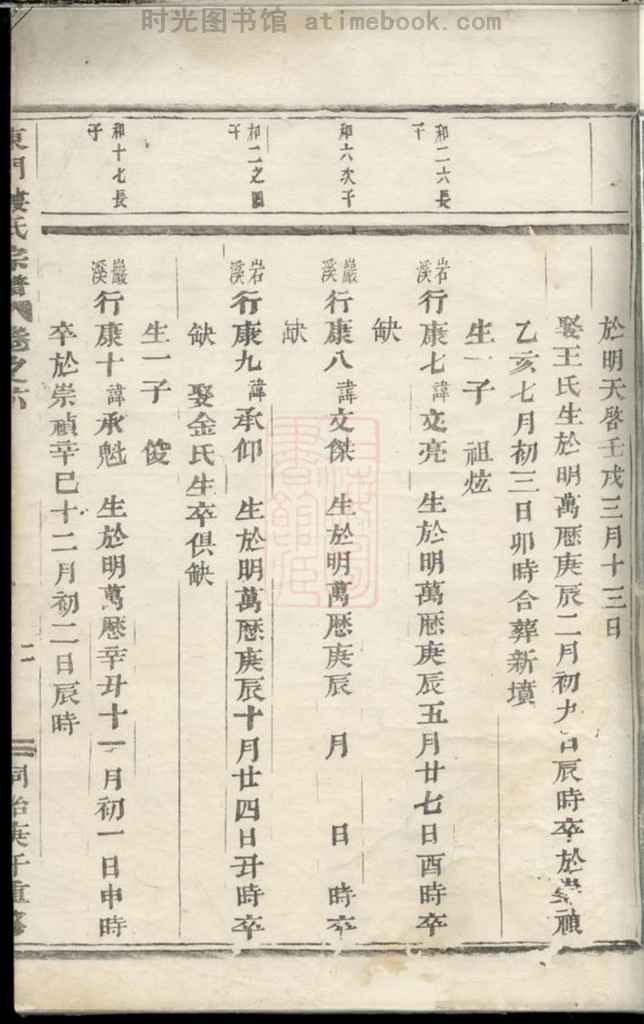 时光图书馆 www.atimebook.com
於明天啓壬戌三月十三日
娶王氏生於明萬厯庚辰二月初九日辰時卒於崇禎
乙亥七月初三日卯時合葬新墳
和二六長子
岩溪行康七諱文亮 生於明萬厯庚辰五月廿七日酉時卒
缺
生一子 祖炫
和六次子
巖溪行康八諱文傑 生於明萬厯庚辰 月 日 時卒
缺
和二之
子
岩溪行康九諱承仰 生於明萬厯庚辰十月廿四日丑時卒
缺 娶金氏生卒俱缺
生一子 俊
和十七長子
巖溪行康十諱承魁 生於明萬厯辛丑十一月初一日申時
卒於崇禎辛巳十二月初二日辰時
東門婁氏宗譜 卷之六 二 同治庚午重修